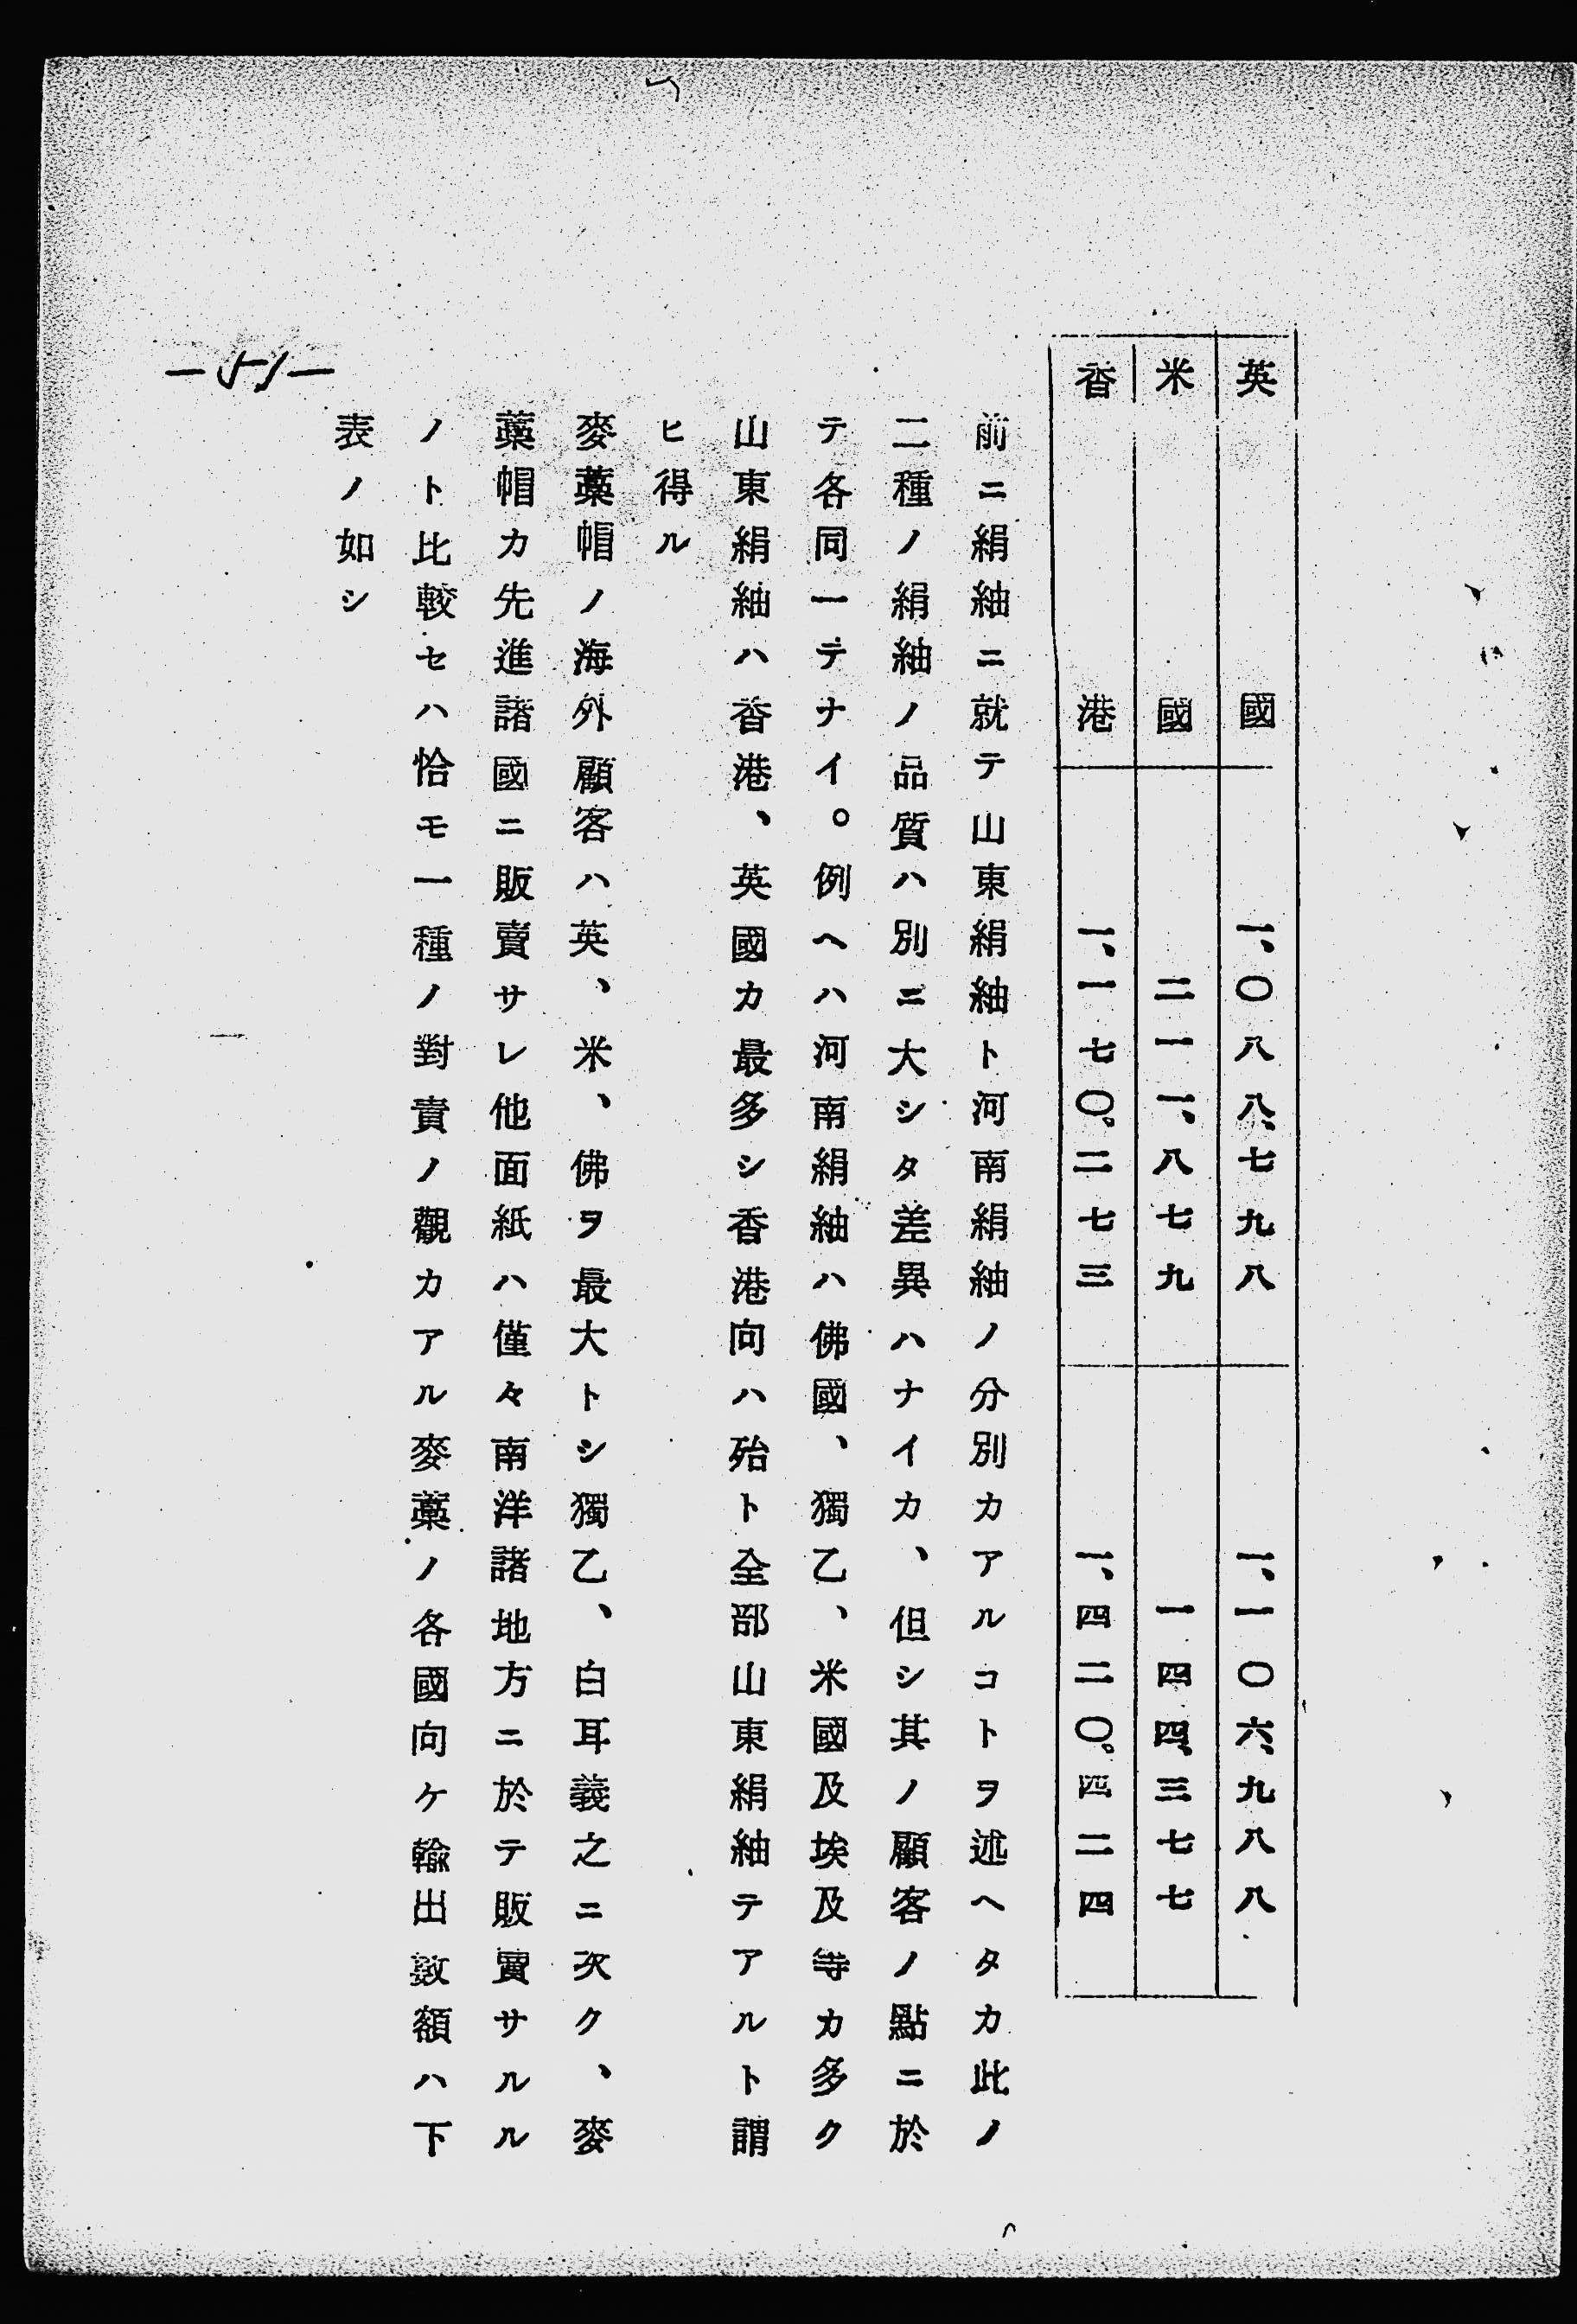 英國 一、〇八八、七九八 一、一〇六、九八八
米國 二一一、八七九 一四四、三七七
香港 一、一七〇。二七三 一、四二〇。四二四
前ニ絹紬ニ就テ山東絹紬ト河南絹紬ノ分別カアルコトヲ述ヘタカ此ノ
二種ノ絹紬ノ品質ハ別ニ大シタ差異ハナイカ、但シ其ノ顧客ノ點ニ於
テ各同一テナイ。例ヘハ河南絹紬ハ佛國、獨乙、米國及埃及等カ多ク
山東絹紬ハ香港、英國カ最多シ香港向ハ殆ト全部山東絹紬テアルト謂
ヒ得ル
麥藁帽ノ海外顧客ハ英、米、佛ヲ最大トシ獨乙、白耳義之ニ次ク、麥
藁帽カ先進諸國ニ販賣サレ他面紙ハ僅々南洋諸地方ニ於テ販賣サルル
ノト比較セハ恰モ一種ノ對責ノ觀カアル麥藁ノ各國向ケ輸出數額ハ下
表ノ如シ